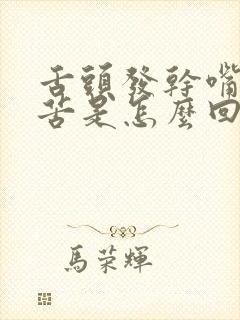 舌頭發幹嘴
苦是怎麼回
馬荣輝